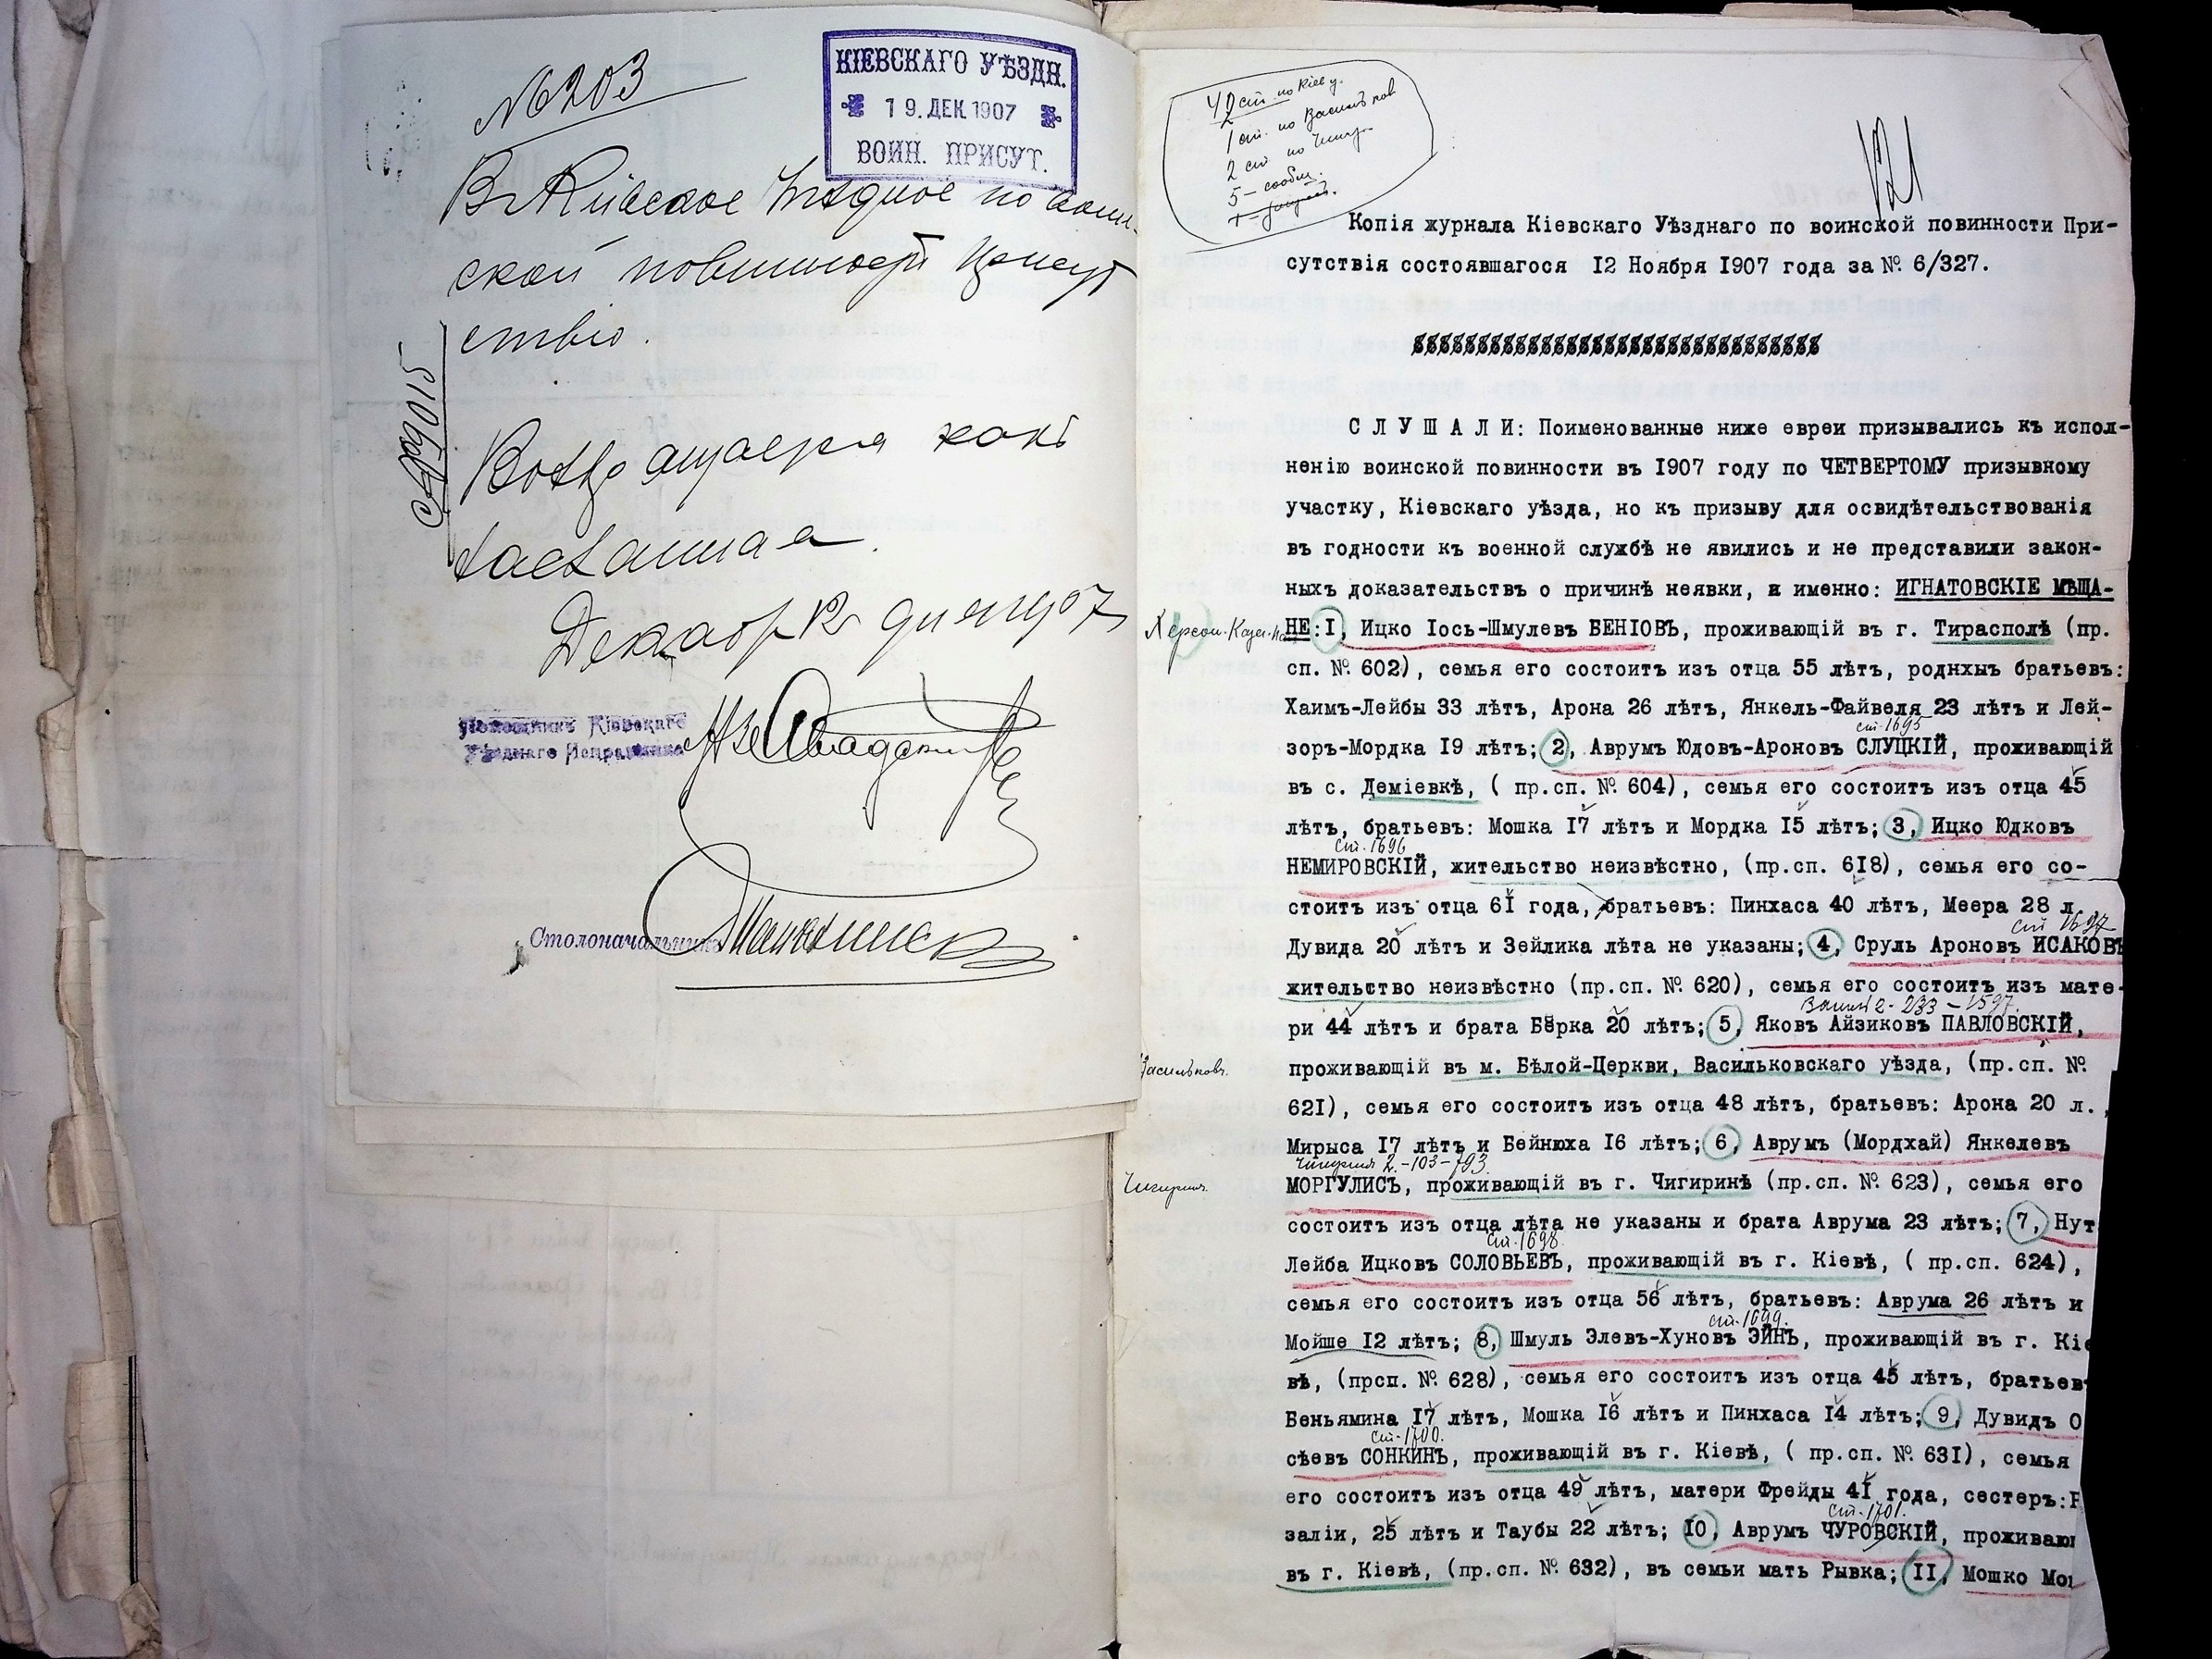 №203
КІЕВСКАГО УѢЗДН.
19. ДЕК 1907
ВОИН. ПРИСУТ.
В Кіевское Уѣздное по воин-
ской повинности Присут
ствіе.
Декабр 12 дня 1907
Помощникъ Кіевскаго
Уѣзднаго Исправника
Столоначальникъ
42 ст. по Кіев у.
1 ст. по Васильков
2 ст по Чигир.
5 - сообщ.
121
Копія журнала Кіевскаго Уѣзднаго по воинской повинности При-
сутствія состоявшагося 12 Ноября 1907 года за №. 6/327.
С Л У Ш А Л И: Поименованные ниже евреи призывались къ испол-
ненію воинской повинности въ 1907 году по ЧЕТВЕРТОМУ призывному
участку, Кіевскаго уѣзда, но къ призыву для освидѣтельствованія
въ годности къ военной службѣ не явились и не представили закон-
ныхъ доказательствъ о причинѣ неявки, а именно: ИГНАТОВСКІЕ МѢЩА-
Херсон.
НЕ:I, Ицко Іось-Шмулевъ БЕНІОВЪ, проживающій въ г. Тирасполѣ (пр.
сп. №. 602), семья его состоитъ изъ отца 55 лѣтъ, роднхыъ братьевъ:
Хаимъ-Лейбы 33 лѣтъ, Арона 26 лѣтъ, Янкель-Файвеля 23 лѣтъ и Лей-
ст. 1695
зоръ-Мордка I9 лѣтъ; 2, Аврумъ Юдовъ-Ароновъ СЛУЦКІЙ, проживающій
въ с. Деміевкѣ, ( пр.сп. №. 604), семья его состоитъ изъ отца 45
лѣтъ, братьевъ: Мошка I7 лѣтъ и Мордка I5 лѣтъ; 3, Ицко Юдковъ
ст. 1696
НЕМИРОВСКІЙ, жительство неизвѣстно, (пр.сп. 6I8), семья его со-
стоитъ изъ отца 6I года, братьевъ: Пинхаса 40 лѣтъ, Меера 28 л.
ст 1697
Дувида 20 лѣтъ и Зейлика лѣта не указаны; 4, Сруль Ароновъ ИСАКОВЪ
жительство неизвѣстно (пр.сп. №. 620), семья его состоитъ изъ мате-
2 - 233 - 1597
ри 44 лѣтъ и брата Берка 20 лѣтъ; 5, Яковъ Айзиковъ ПАВЛОВСКІЙ,
Васильков.
проживающій въ м. Бѣлой-Церкви, Васильковскаго уѣзда, (пр.сп. №.
62I), семья его состоитъ изъ отца 48 лѣтъ, братьевъ: Арона 20 л.,
Мирыса I7 лѣтъ и Бейнюха I6 лѣтъ; 6, Аврумъ (Мордхай) Янкелевъ
Чигирин 2 - 103 - 793
Чигирин.
МОРГУЛИСЪ, проживающій въ г. Чигиринѣ (пр.сп. №. 623), семья его
состоитъ изъ отца лѣта не указаны и брата Аврума 23 лѣтъ; 7, Нут
ст. 1698.
Лейба Ицковъ СОЛОВЬЕВЪ, проживающій въ г. Кіевѣ, ( пр.сп. 624),
семья его состоитъ изъ отца 56 лѣтъ, братьевъ: Аврума 26 лѣтъ и
ст. 1699.
Мойше I2 лѣтъ; 8, Шмуль Элевъ-Хуновъ ЭЙНЪ, проживающій въ г. Кіе
вѣ, (прсп. №. 628), семья его состоитъ изъ отца 45 лѣтъ, братьев
Беньямина I7 лѣтъ, Мошка I6 лѣтъ и Пинхаса I4 лѣтъ; 9, Дувидъ О
ст. 1700.
сѣевъ СОНКИНЪ, проживающій въ г. Кіевѣ, ( пр.сп. №. 63I), семья
его состоитъ изъ отца 49 лѣтъ, матери Фрейды 4I года, сестеръ:
ст. 1701.
заліи, 25 лѣтъ и Таубы 22 лѣтъ; IO, Аврумъ ЧУРОВСКІЙ, проживаю
въ г. Кіевѣ, (пр.сп. №. 632), въ семьи мать Рывка; II, Мошко Мо